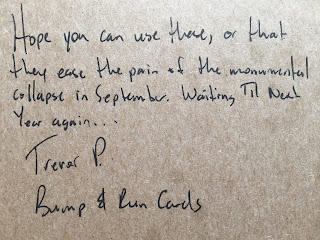 Hope you can use these, or that
they ease the pain of the monumental
collapse in September. Waiting Til Next
Year again...
Trevor P.
Bump & Run Cards